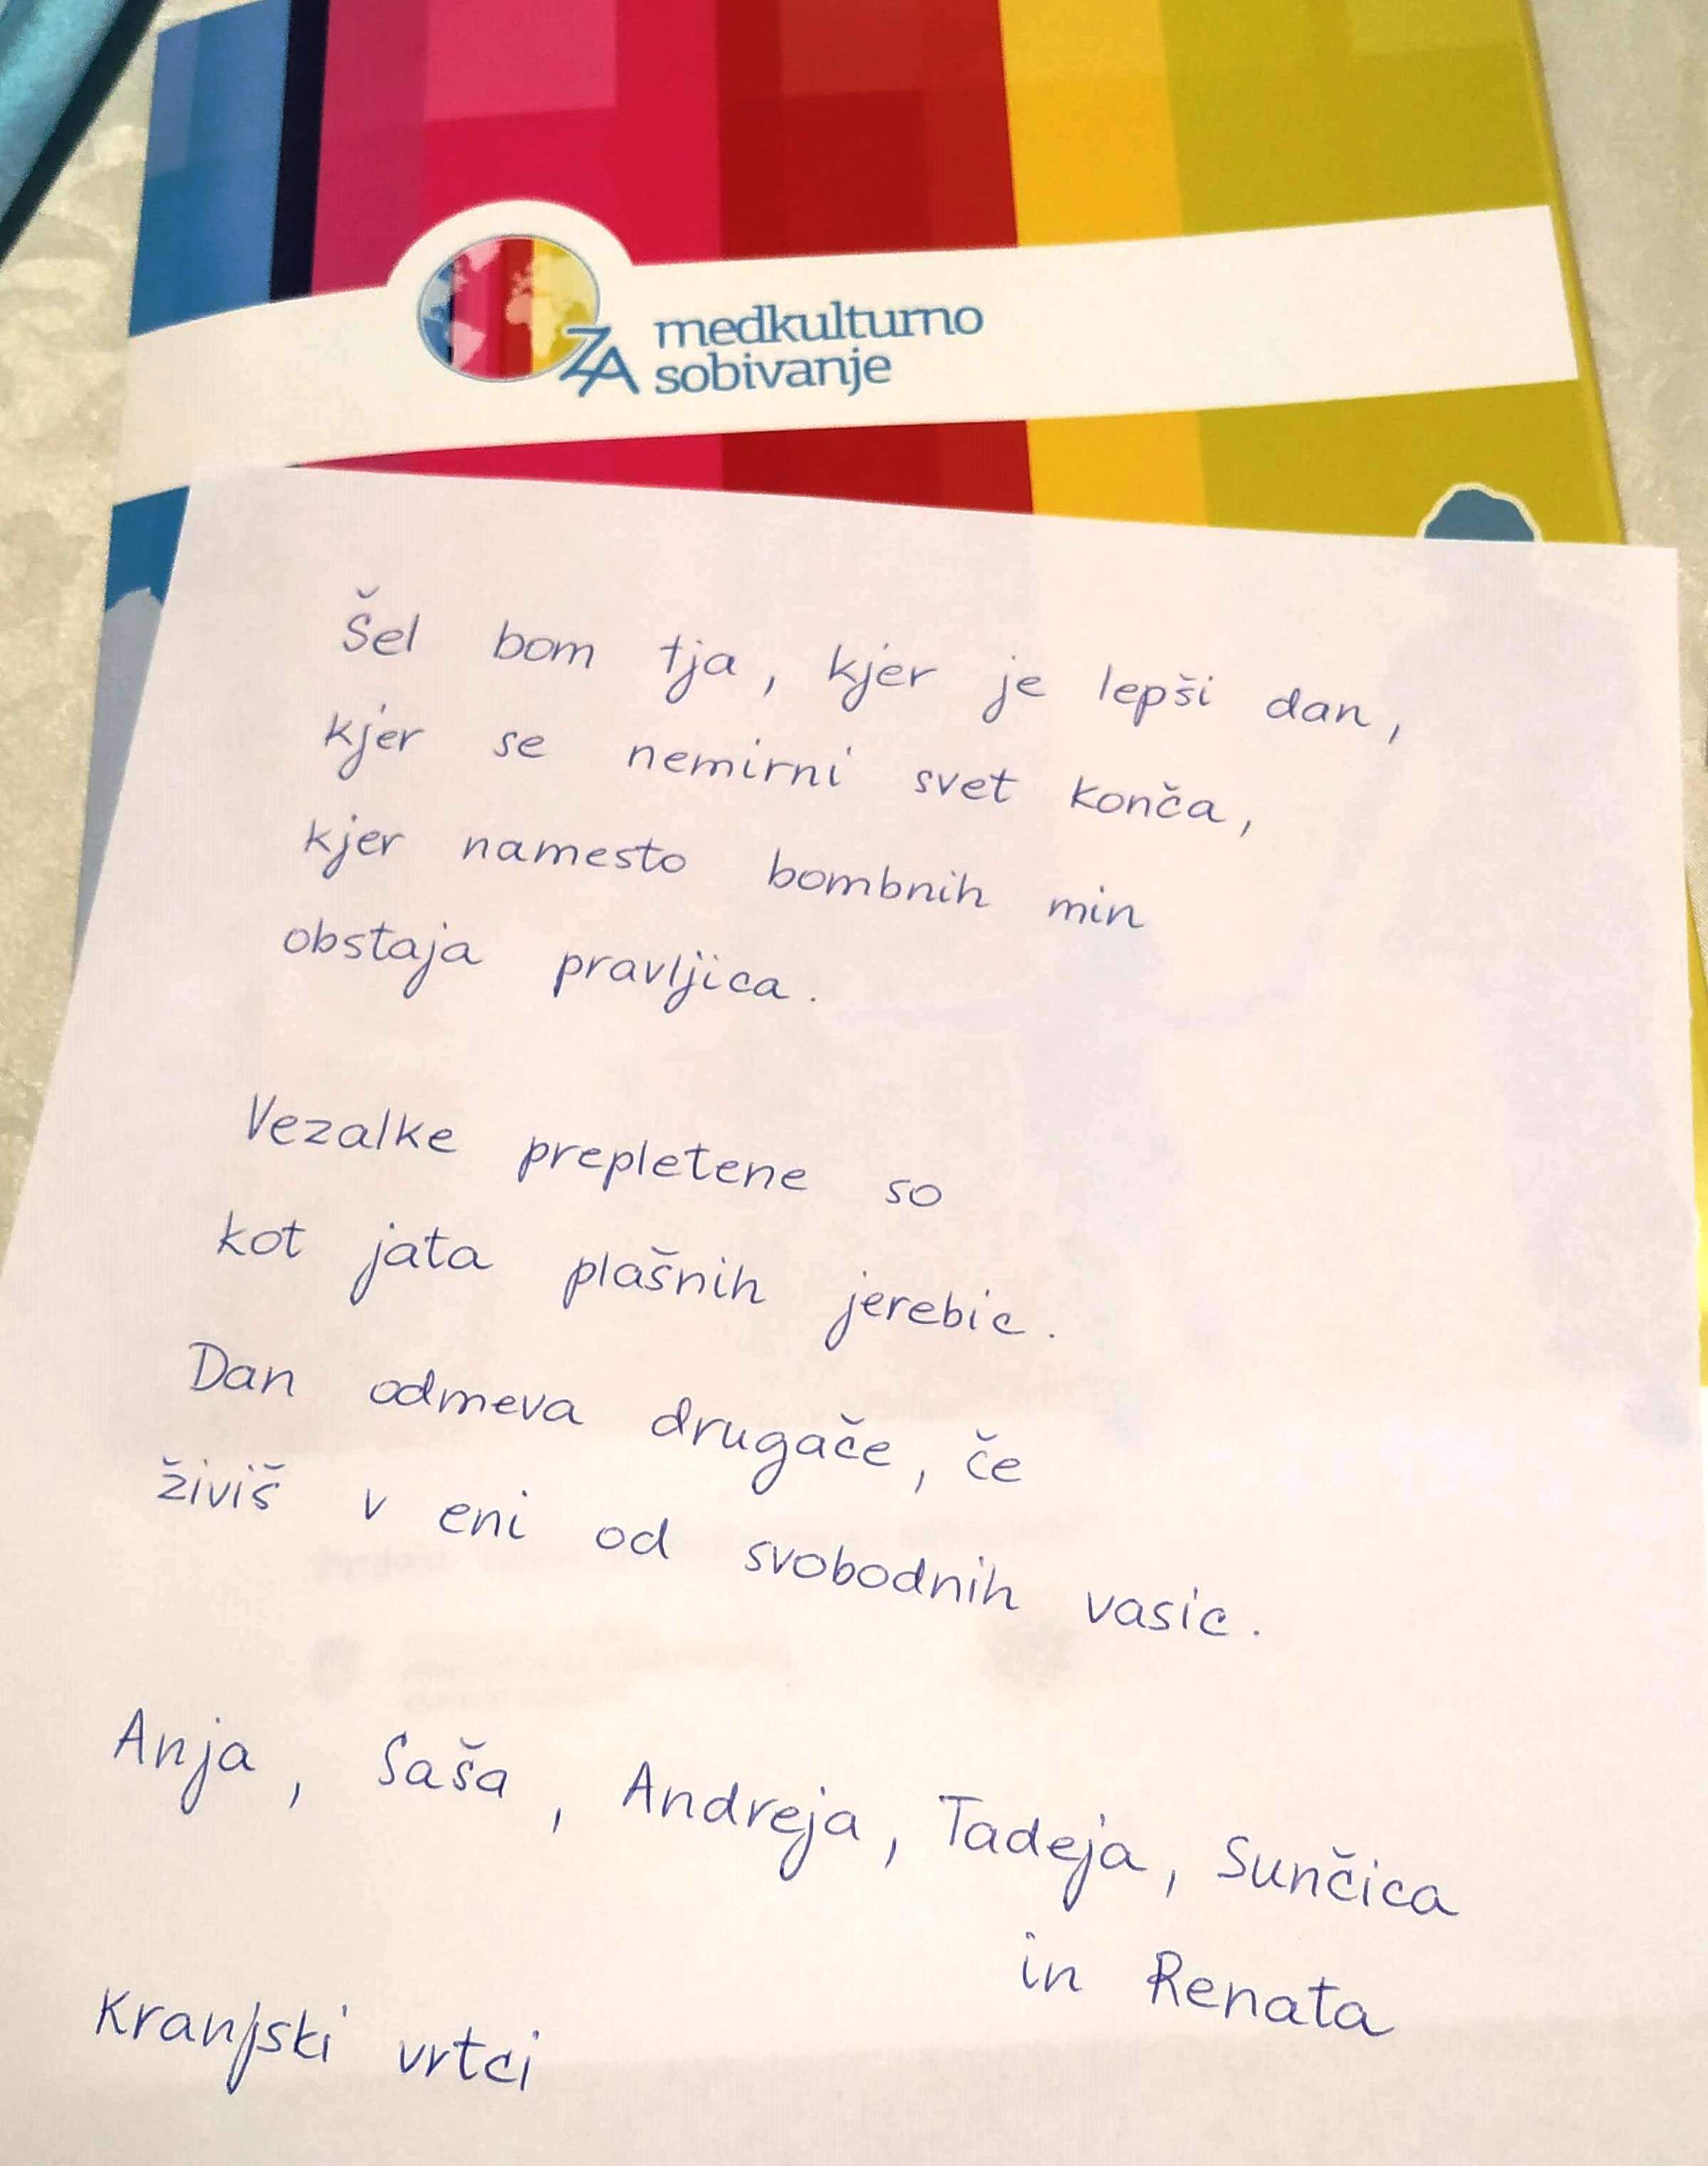 ZA medkulturno
sobivanje
Šel bom tja, kjer je lepši dan,
kjer se nemirni svet konča,
kjer namesto bombnih min
obstaja pravljica.
Vezalke prepletene so
kot jata plašnih jerebic.
Dan odmeva drugače, če
živiš v eni od svobodnih vasic.
Anja, Saša, Andreja, Tadeja, Sunčica
in Renata
Kranjski vrtci